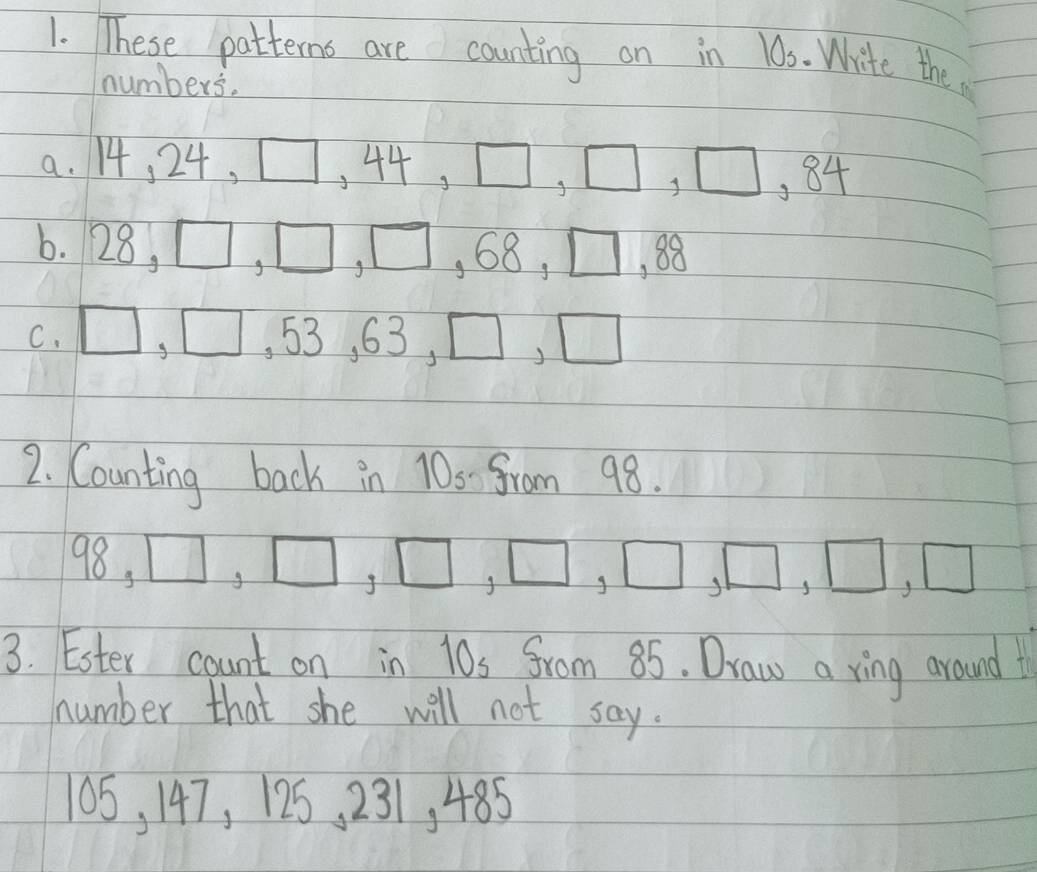 1. These patterns are counting on in 10s. Write the
numbers.
a. 14, 24, □, 44, □, □, □, 84
b. 28, □, □, □, 68, □, 88
c. □, □, 53, 63, □, □
2. Counting back in 10s from 98.
98, □, □, □, □, □, □, □, □
3. Ester count on in 10s from 85. Draw a ring around
number that she will not say.
105, 147, 125, 231, 485